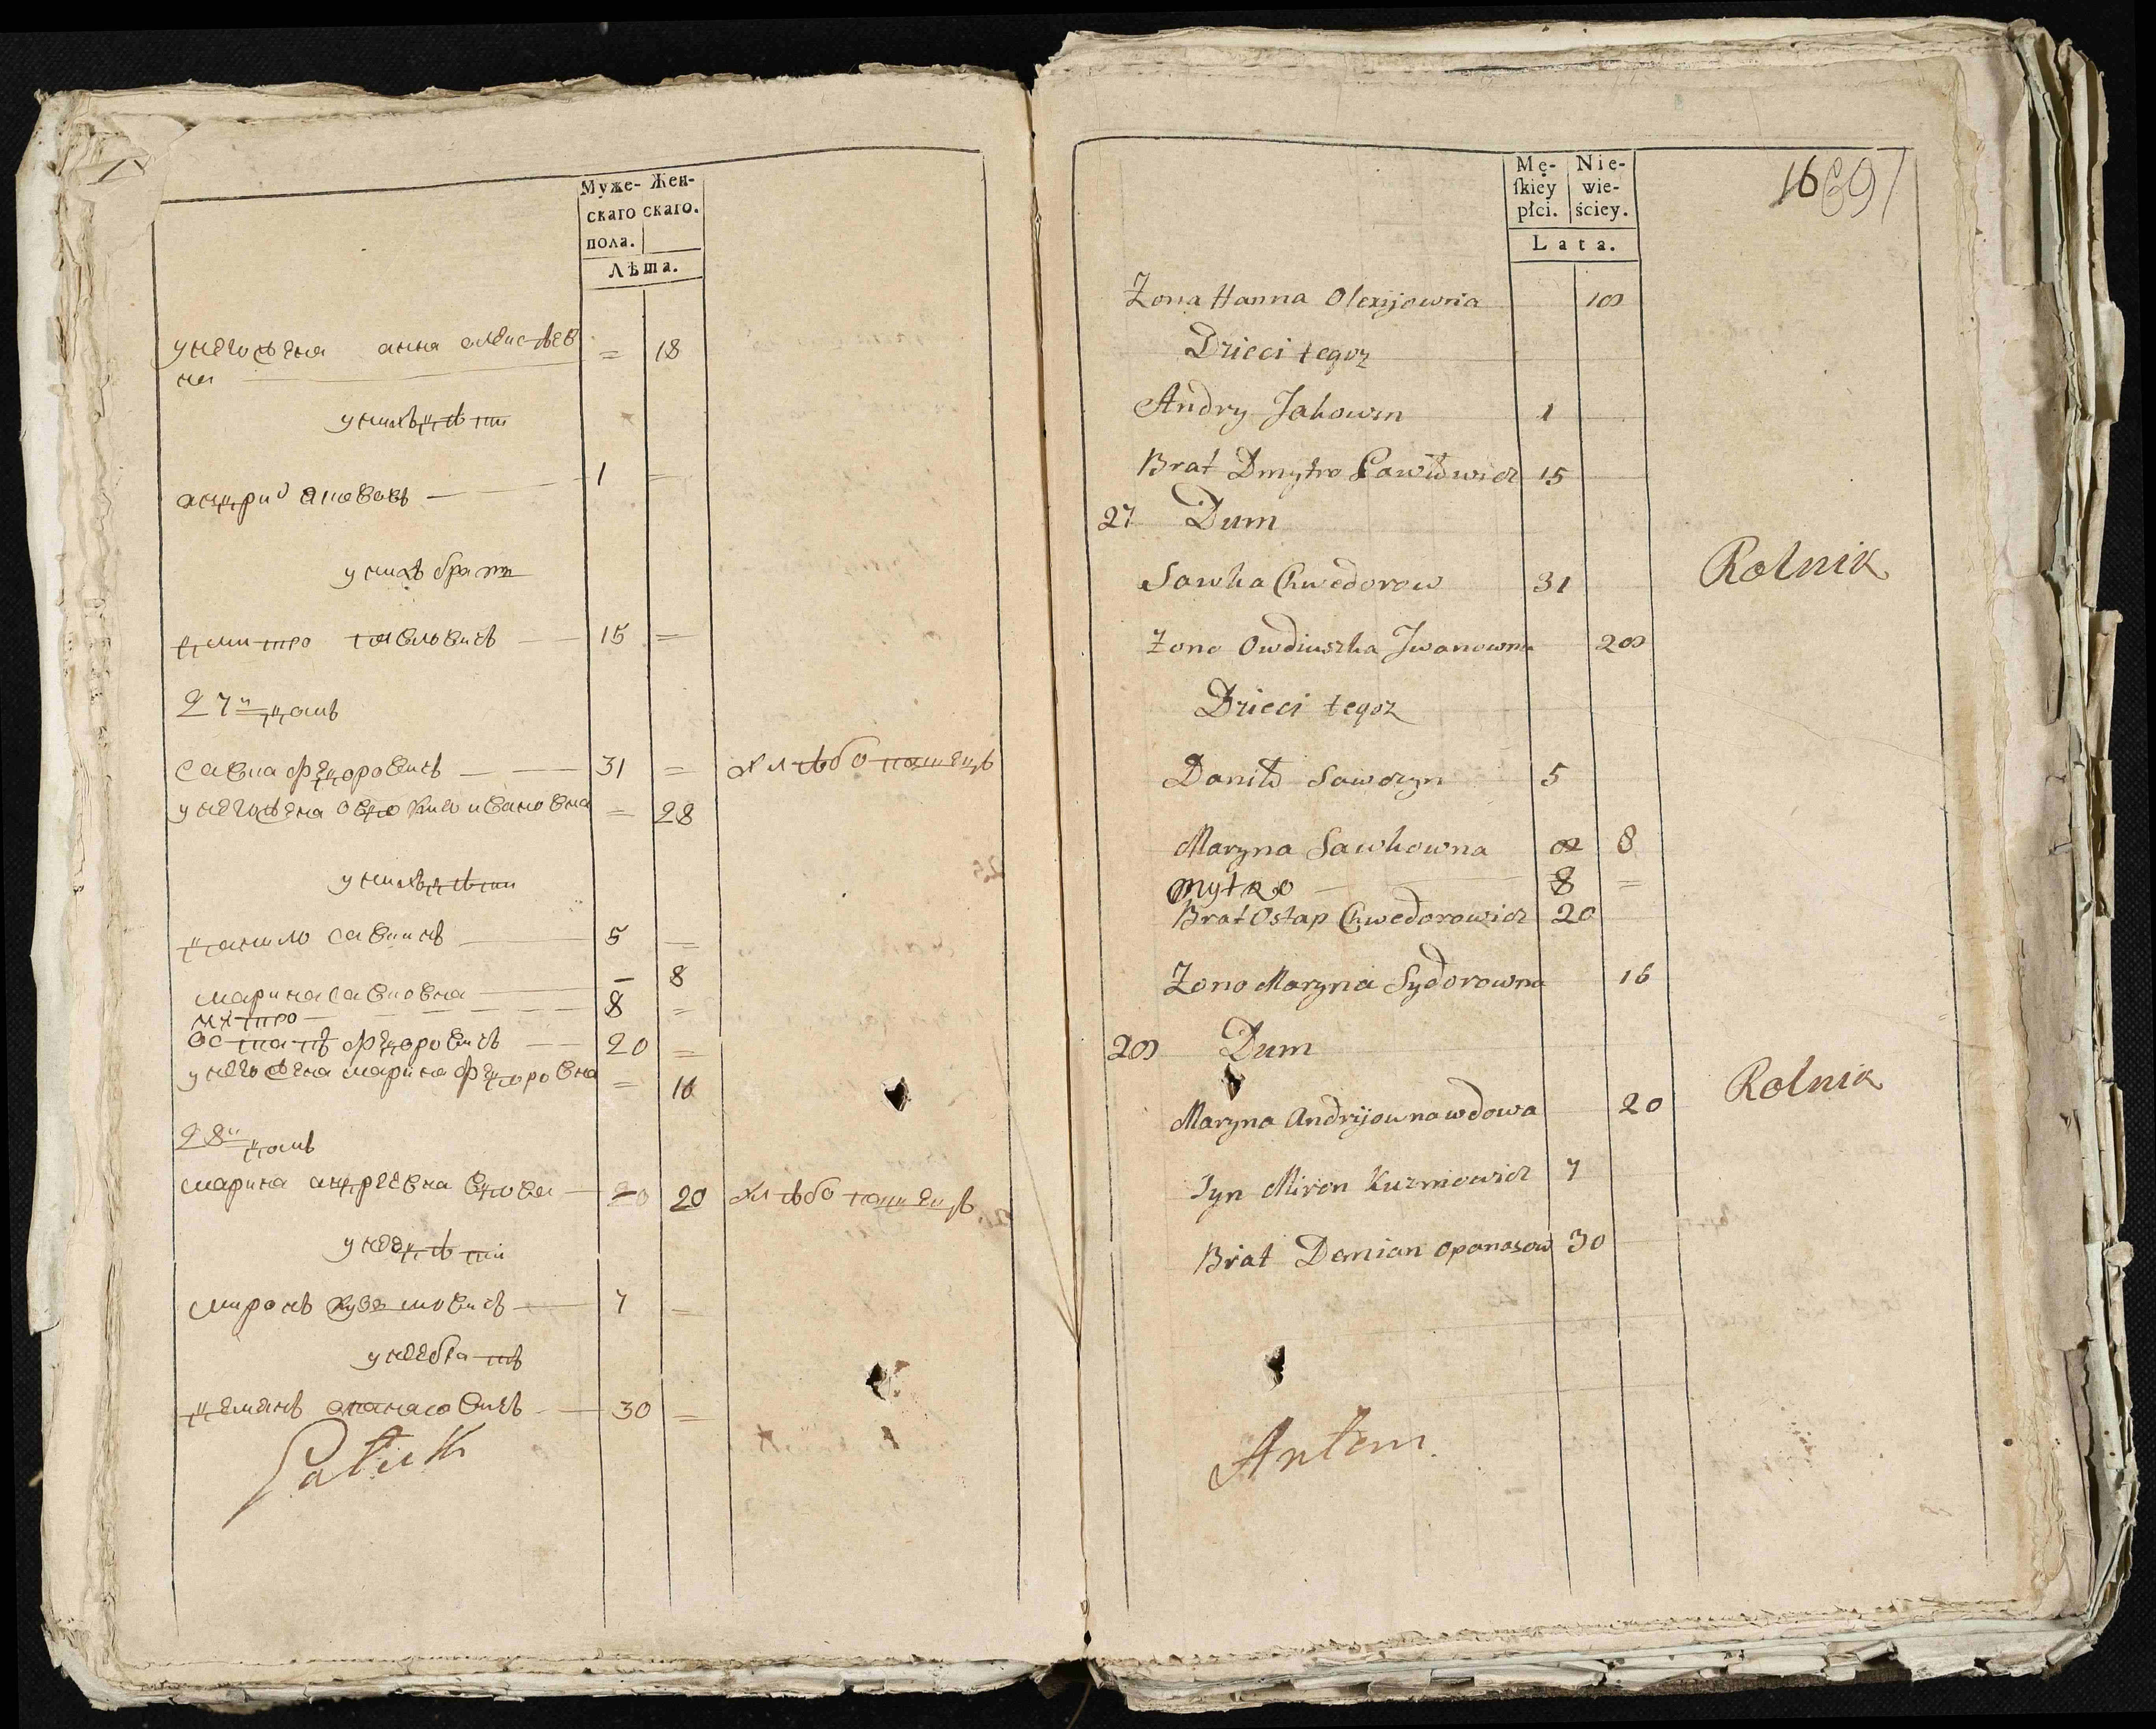 Муже- Жен-
скаго скаго.
пола.
Лѣта.
у него жена анна алексѣев
на = 18
у нихъ дѣти
андрий якововъ 1 =
у нихъ братъ
дмитро павловичъ 15 =
27й домъ
савка федоровичъ 31 = хлѣбопашецъ
у него жена овдюшка ивановна = 28
у нихъ дѣти
данило савчинъ 5 =
марина савковна - 8
митро 8 =
остапъ федоровичъ 20 =
у него жена марина федоровна = 16
28й домъ
марина андреевна вдова 20 хлѣбопашецъ
у нее дѣти
миронъ кузьмовичъ 7 =
у нее братъ
демянъ опанасовичъ 30 =
Mę- Nie-
ſkiey wie-
płci. ściey.
Lata.
16 691
Zona Hanna Olexijowna 18
Dzieci tegoz
Andry Jakowin 1
Brat Dmytro Pawłowicz 15
27 Dum
Sawka Chwedorow 31 Rolnik
Zona Owdiuszka Jwanowna 28
Dzieci tegoz
Daniło Sawczyn 5
Maryna Sawkowna 8
Mytro 8 =
Brat Ostap Chwedorowicz 20
Zona Maryna Sydorowna 16
28 Dum
Maryna Andryjowna wdowa 20 Rolnik
Syn Miron Kuzmiowicz 7
Brat Demian Opanasow 30
Antem